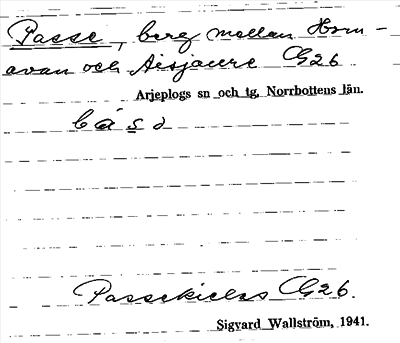 Passe, berg mellan Horn-
avan och Aisjaure G26
Arjeplogs sn och tg, Norrbottens län.
Passekielas G26.
Sigvard Wallström, 1941.